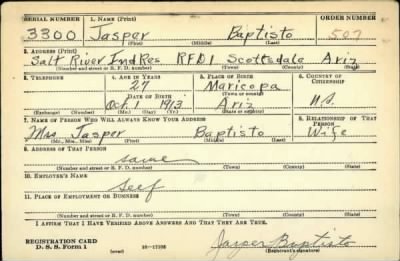 SERIAL NUMBER 1. NAME (Print) ORDER NUMBER
3300 Jasper Baptisto 507
(First) (Middle) (Last)
2. ADDRESS (Print)
Salt River Ind Res RFD1 Scottsdale Ariz
(Number and street or R. F. D. number) (Town) (County) (State)
3. TELEPHONE 4. AGE IN YEARS 5. PLACE OF BIRTH 6. COUNTRY OF CITIZENSHIP
27 Maricopa
DATE OF BIRTH (Town or county)
Oct. 1 1913 Ariz U.S.
(Exchange) (Number) (Mo.) (Day) (Yr.) (State or country)
7. NAME OF PERSON WHO WILL ALWAYS KNOW YOUR ADDRESS 8. RELATIONSHIP OF THAT PERSON
Mrs Jasper Baptisto Wife
(Mr., Mrs., Miss) (First) (Middle) (Last)
9. ADDRESS OF THAT PERSON
same
(Number and street or R. F. D. number) (Town) (County) (State)
10. EMPLOYER'S NAME
Self
11. PLACE OF EMPLOYMENT OR BUSINESS
(Number and street or R. F. D. number) (Town) (County) (State)
I AFFIRM THAT I HAVE VERIFIED ABOVE ANSWERS AND THAT THEY ARE TRUE.
REGISTRATION CARD
D. S. S. Form 1 (over) Jasper Baptisto
(Registrant's signature)